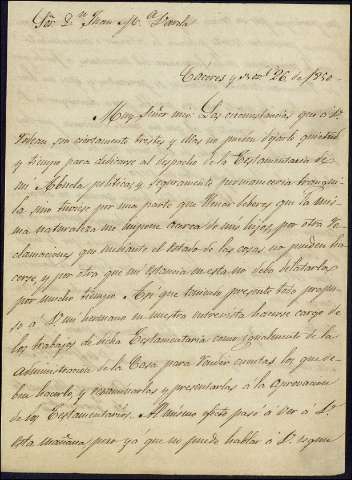 Sor. Dn. Juan Ma.
Cáceres y 26 de 1850
Muy Señor mio: Las circunstancias que á V.
rodean son ciertamente tristes y ellas no pueden dejarle quietud
y tiempo para dedicarse al despacho de la Testamentaria de
mi Abuelo politico, y seguramente permaneceria tranqui-
la, sino tuviese por una parte que llenar deberes que la mis-
ma naturaleza me impone cerca de mis hijos, por otra re-
clamaciones que mediante el estado de las cosas no pueden ha-
cerse, y por otra que mi estancia en esta no debo dilatarla
por mucho tiempo. Asi que teniendo presente esto propu-
so á V. mi hermano en nuestra entrevista hacerse cargo de
los trabajos de dicha Testamentaría como igualmente de la
Administracion de la Casa para rendir cuentas los que de-
ben hacerlo y examinarlas y presentarlas á la aprovacion
de los Testamentarios. Al mismo efecto pasó á ver á V.
esta mañana pero ya que no puedo hablar á V.